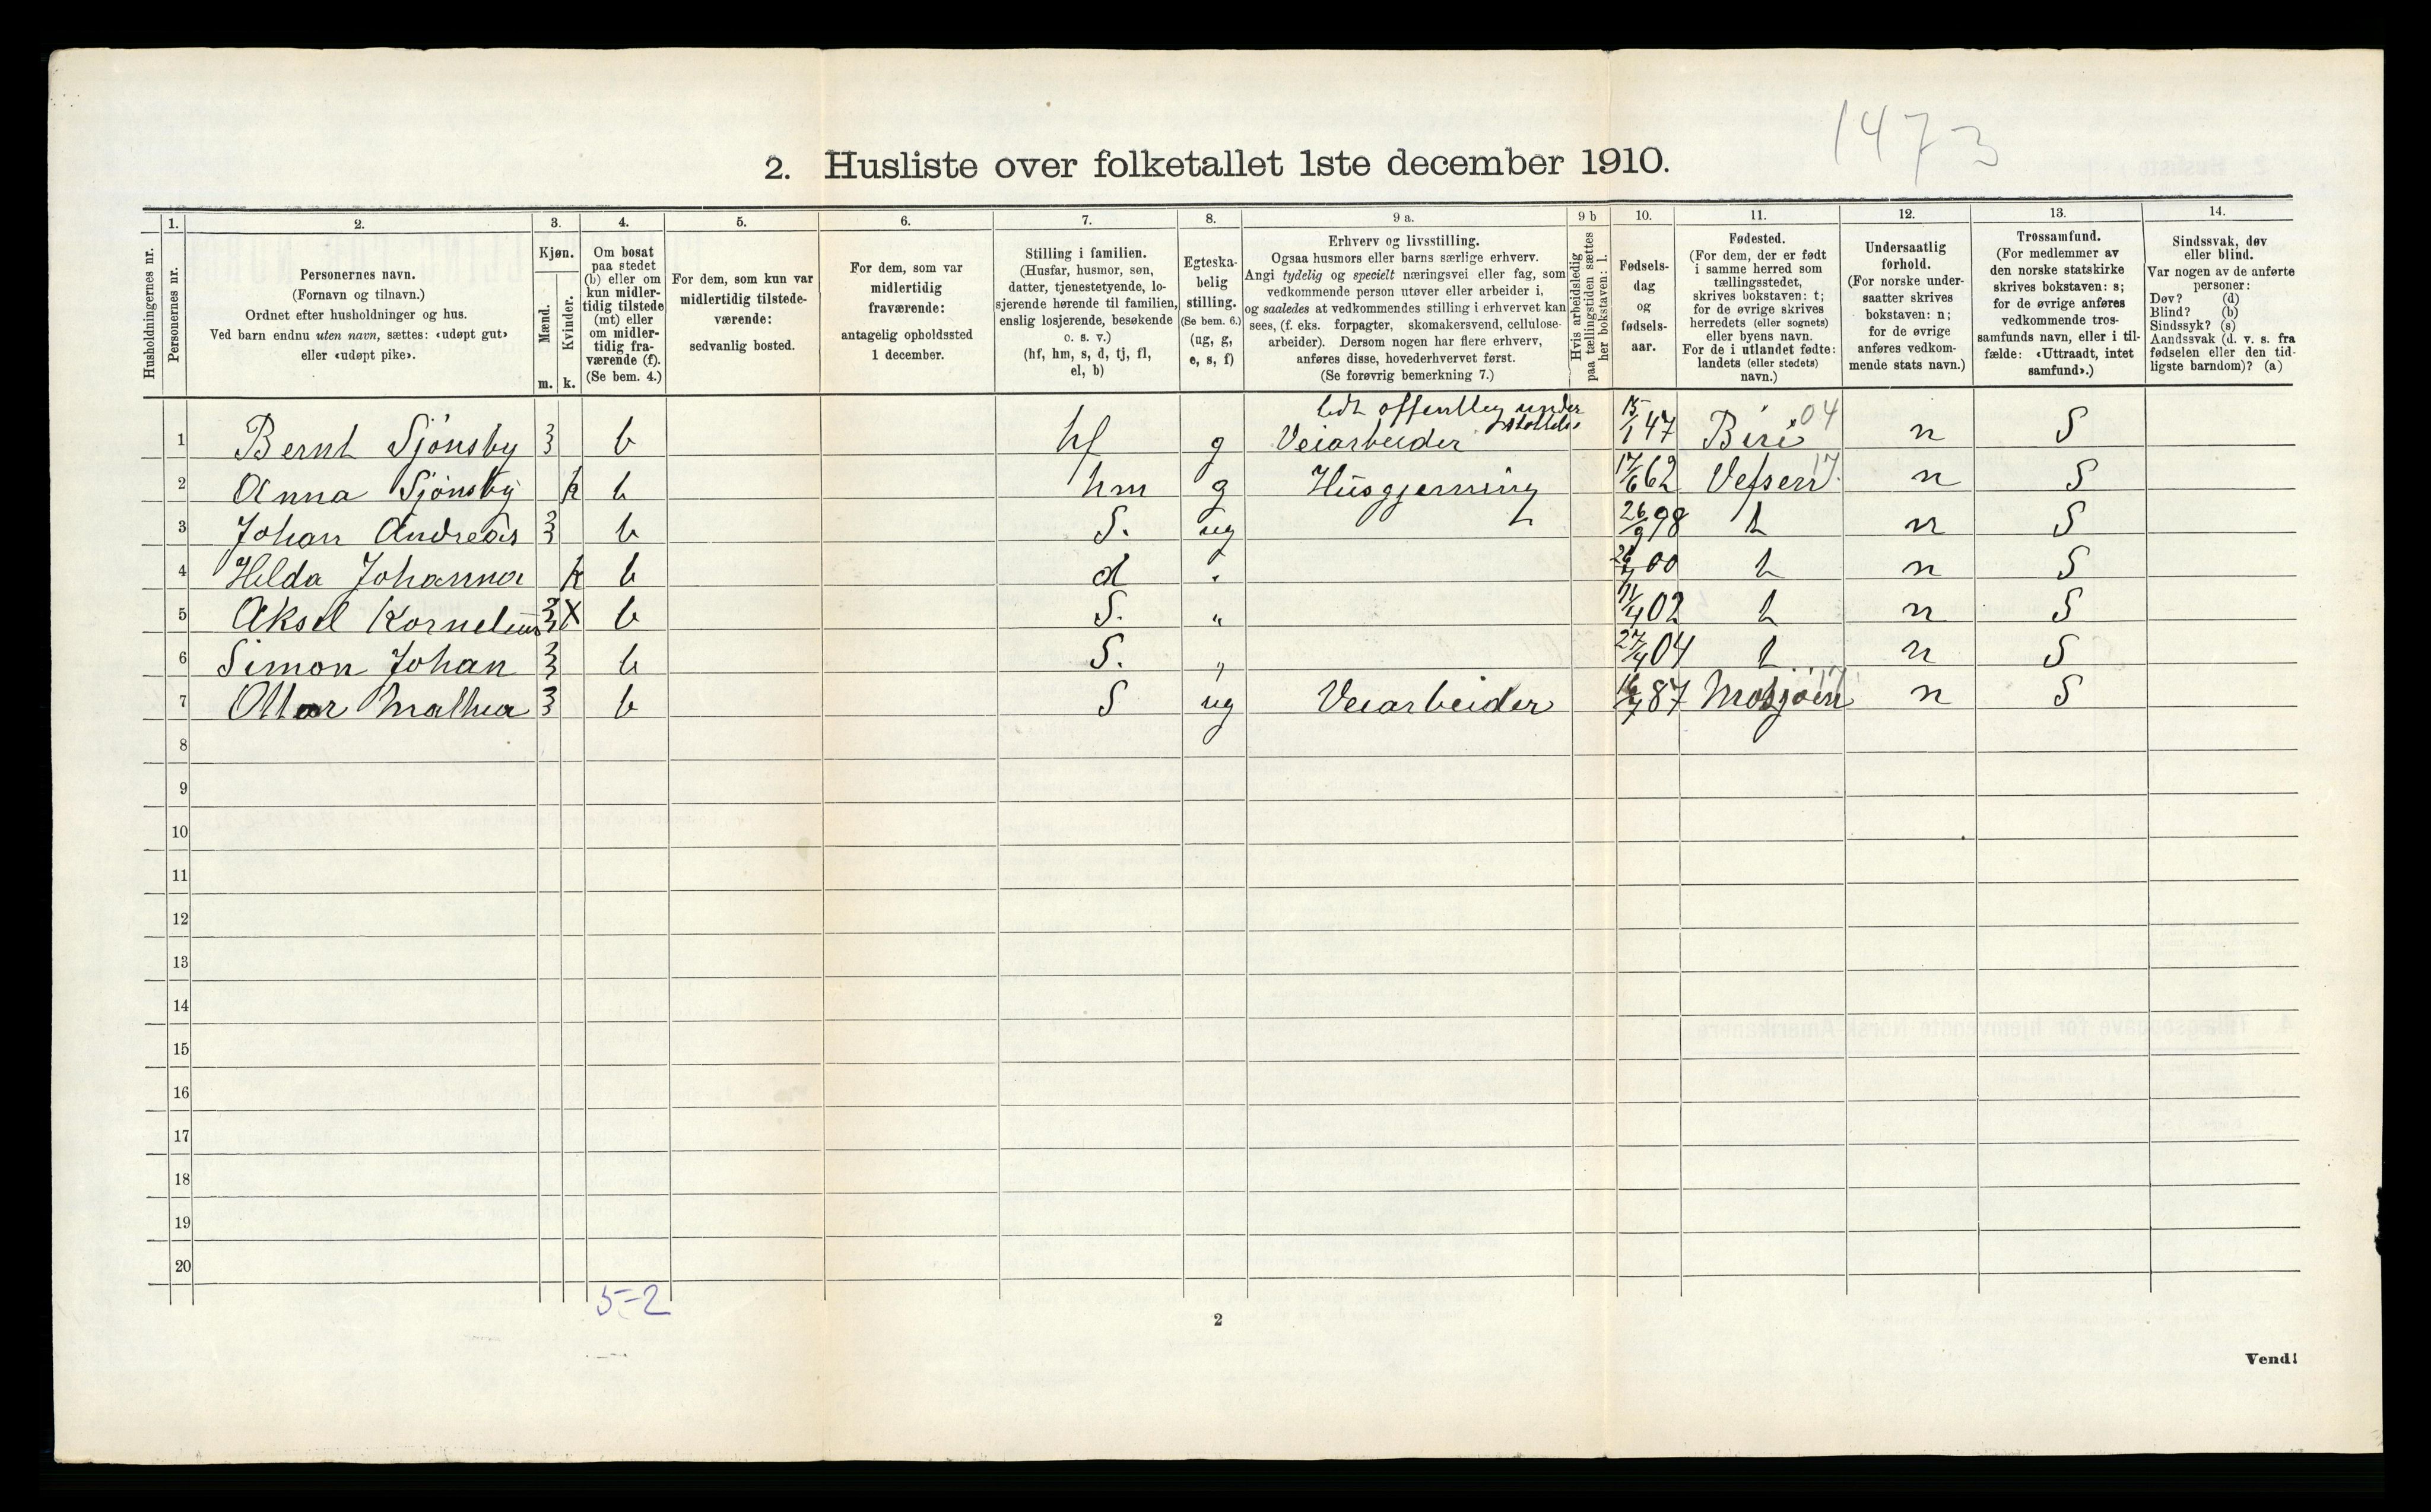 1473
2. Husliste over folketallet 1ste december 1910.
Husholdningernes nr.
1.
Personernes nr.
2.
Personernes navn.
(Fornavn og tilnavn.)
Ordnet efter husholdninger og hus.
Ved barn endnu uten navn, sættes: «udøpt gut»
eller «udøpt pike».
3.
Kjøn.
Mænd.
Kvinder.
m. k.
4.
Om bosat
paa stedet
(b) eller om
kun midler-
tidig tilstede
(mt) eller
om midler-
tidig fra-
værende (f).
(Se bem. 4.)
5.
For dem, som kun var
midlertidig tilstede-
værende:
sedvanlig bosted.
6.
For dem, som var
midlertidig
fraværende:
antagelig opholdssted
1 december.
7.
Stilling i familien.
(Husfar, husmor, søn,
datter, tjenestetyende, lo-
sjerende hørende til familien,
enslig losjerende, besøkende
o. s. v.)
(hf, hm, s, d, tj, fl,
el, b)
8.
Egteska-
belig
stilling.
(Se bem. 6.)
(ug, g,
e, s, f)
9 a.
Erhverv og livsstilling.
Ogsaa husmors eller barns særlige erhverv.
Angi tydelig og specielt næringsvei eller fag, som
vedkommende person utøver eller arbeider i,
og saaledes at vedkommendes stilling i erhvervet kan
sees, (f. eks. forpagter, skomakersvend, cellulose-
arbeider). Dersom nogen har flere erhverv,
anføres disse, hovederhvervet først.
(Se forøvrig bemerkning 7.)
9 b
Hvis arbeidsledig
paa tællingstiden sættes
her bokstaven: l.
10.
Fødsels-
dag
og
fødsels-
aar.
11.
Fødested.
(For dem, der er født
i samme herred som
tællingsstedet,
skrives bokstaven: t;
for de øvrige skrives
herredets (eller sognets)
eller byens navn.
For de i utlandet fødte:
landets (eller stedets)
navn.)
12.
Undersaatlig
forhold.
(For norske under-
saatter skrives
bokstaven: n;
for de øvrige
anføres vedkom-
mende stats navn.)
13.
Trossamfund.
(For medlemmer av
den norske statskirke
skrives bokstaven: s;
for de øvrige anføres
vedkommende tros-
samfunds navn, eller i til-
fælde: «Uttraadt, intet
samfund».)
14.
Sindssvak, døv
eller blind.
Var nogen av de anførte
personer:
Døv? (d)
Blind? (b)
Sindssyk? (s)
Aandssvak (d. v. s. fra
fødselen eller den tid-
ligste barndom)? (a)
offentlig under
1 Bernt Sjønsby 3 b hf g Veiarbeider 15/1 47 Biri 04 n S
2 Anna Sjønsby k b hm g Husgjerning 17/6 62 Vefsen 17 n S
3 Johan Andreas 3 b S. ug 26/9 98 t n S
4 Hilda Johanna k b d " 00 t n S
5 Aksel Kornelius 3 X b S. " 11/4 02 t n S
6 Simon Johan 3 b S. " 27/4 04 t n S
7 Ottar Mathea 3 b S ug Veiarbeider 87 Mosjøen 17 n S
8
9
10
11
12
13
14
15
16
17
18
19
20
5-2
2
Vend!